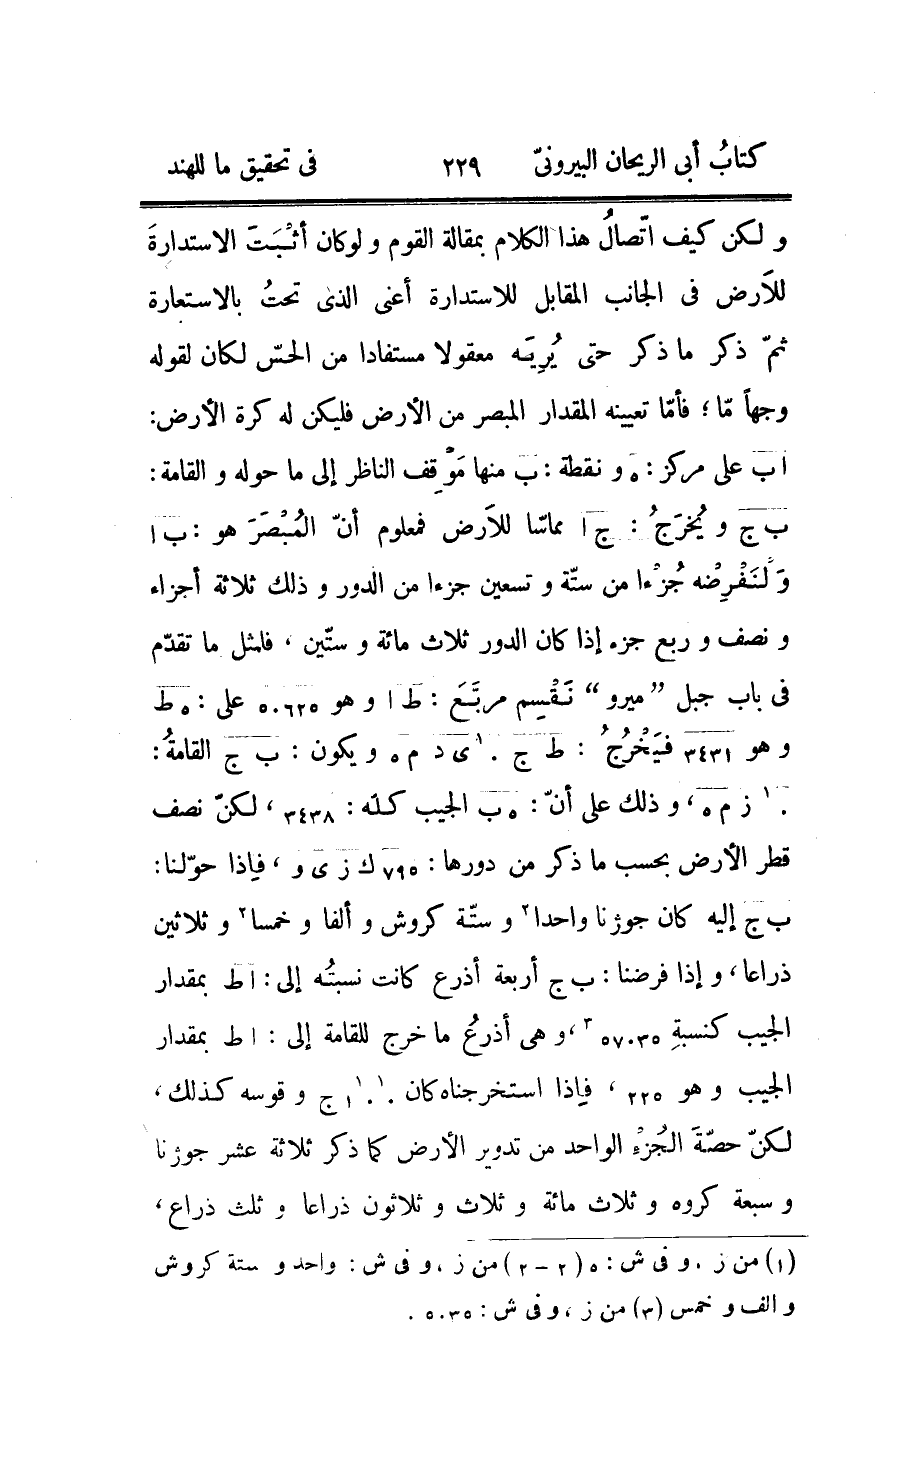 كتابُ أبى الريحان البيرونىّ ٢٢٩ فى تحقيق ما للهند
و لكن كيف اتّصالُ هذا الكلام بمقالة القوم و لوكان أثْبَتَ الاستدارةَ
للأرض فى الجانب المقابل للاستدارة أعنى الذى تحتُ بالاستعارة
ثمّ ذكر ما ذكر حتى يُرِيَه معقولا مستفادا من الحسّ لكان لقوله
وجهاً مّا؛ فأمّا تعيينه المقدار المبصر من الأرض فليكن له كرة الأرض:
اب على مركز: ه و نقطة: ب منها مَوْقِف الناظر إلى ما حوله و القامة:
ب ج و يُخرَجُ: ج ا مماسّا للأرض فمعلوم أنّ المُبْصَرَ هو: ب ا
وَلْنَفْرِضْه جُزْءا من ستّة و تسعين جزءا من الدور و ذلك ثلاثة أجزاء
و نصف و ربع جزء إذا كان الدور ثلاث مائة و ستّين، فلمثل ما تقدّم
فى باب جبل ”ميرو“ نَقْسِم مربّعَ: ط ا و هو ٥٠٦٢٥ على: ه ط
و هو ٣٤٣١ فيَخْرُجُ: ط ج ٠١ ى د م ه و يكون: ب ج القامةُ:
٠١ ز م ه، و ذلك على أنّ: ه ب الجيب كلّه: ٣٤٣٨، لكنّ نصف
قطر الأرض بحسب ما ذكر من دورها: ٧٩٥ ك ز ى و، فإذا حوّلنا:
ب ج إليه كان جوژنا واحدا٢ و ستّة كروش و ألفا و خمسا٢ و ثلاثين
ذراعا، و إذا فرضنا: ب ج أربعة أذرع كانت نسبتُه إلى: ا ط بمقدار
الجيب كنسبةِ ٥٧٠٣٥ ٣، و هى أذرعُ ما خرج للقامة إلى: ا ط بمقدار
الجيب و هو ٢٢٥، فإذا استخرجناه كان ٠١٠١١ ج و قوسه كذلك،
لكنّ حصّةَ الجُزْء الواحد من تدوير الأرض كما ذكر ثلاثة عشر جوژنا
و سبعة كروه و ثلاث مائة و ثلاث و ثلاثون ذراعا و ثلث ذراع،
(١) من ز، و فى ش: ه (٢ – ٢) من ز، و فى ش: واحد و ستة كروش
و الف و خمس (٣) من ز، و فى ش: ٥٠٣٥.